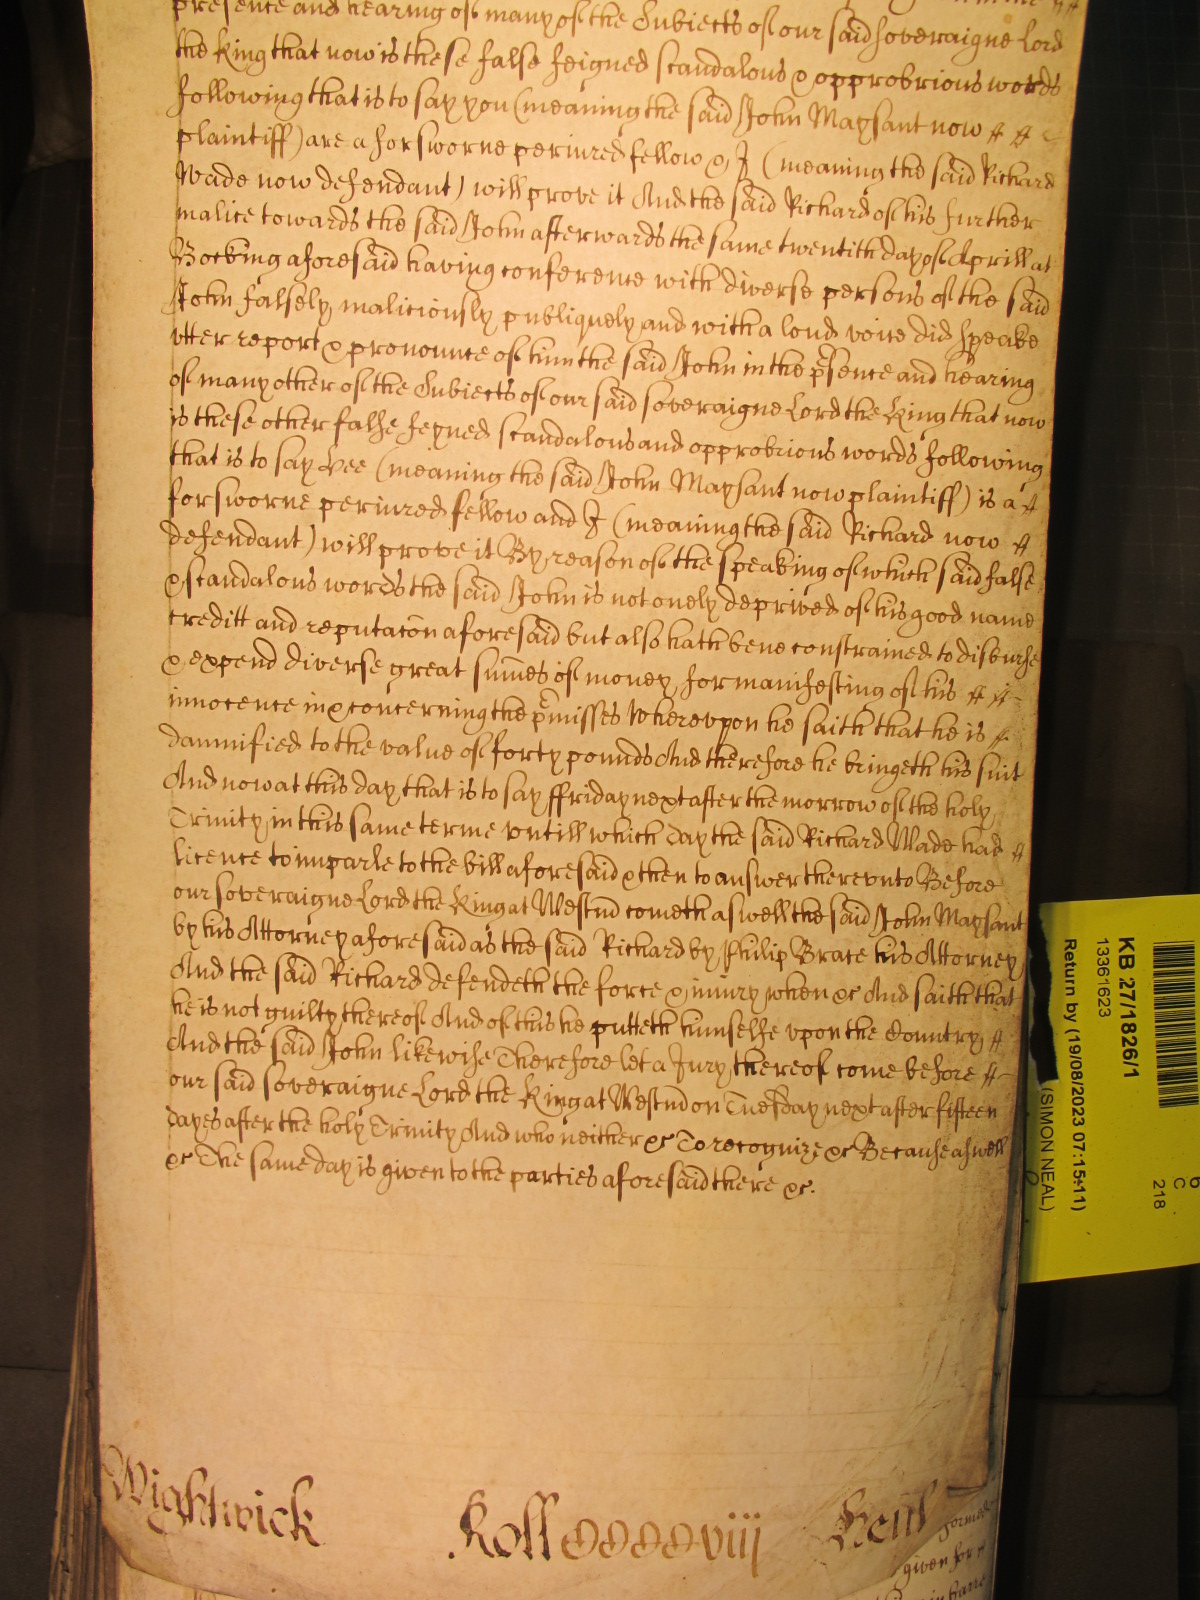 presence and hearing of many of the Subiects of our said soveraigne Lord
the King that now is these false feigned scandalous & opprobrious words
following that is to say you (meaning the said John Maysant now
plaintiff) are a forsworne periured fellow & I (meaning the said Richard
Wade now defendant) will prove it And the said Richard of his further
malice towards the said John afterwards the same twentith day of Aprill at
Bocking aforesaid having conference with diverse persons of the said
John falsely maliciously publiquely and with a loud voice did speake
utter report & pronounce of him the said John in the psence and hearing
of many other of the Subiects of our said soveraigne Lord the King that now
is these other false feyned scandalous and opprobrious words following
that is to say Hee (meaning the said John Maysant now plaintiff) is a
forsworne periured fellow and I (meaning the said Richard now
defendant) will prove it By reason of the speaking of which said false
& scandalous words the said John is not onely deprived of his good name
creditt and reputacon aforesaid but also hath bene constrained to disburse
& expend diverse great sumes of money for manifesting of his
innocence in & concerning the pmisses Wherevpon he saith that he is
damnified to the value of forty pounds And therefore he bringeth his suit
And now at this day that is to say ffriday next after the morrow of the holy
Trinity in this same terme vntill which day the said Richard Wade had
licence to imparle to the bill aforesaid & then to answer therevnto Before
our soveraigne Lord the King at Westmd cometh aswell the said John Maysant
by his Attorney aforesaid as the said Richard by Philip Brace his Attorney
And the said Richard defendeth the force & iniury when &c And saith that
he is not guilty thereof And of this he putteth himselfe vpon the Country
And the said John likewise Therefore let a Jury thereof come before
our said soveraigne Lord the King at Westmd on Tuesday next after fifteen
dayes after the holy Trinity And who neither &c To recognize &c Because aswell
&c The same day is given to the parties aforesaid there &c.
Wightwick Roll CCCCviii Henl
given for
KB 27/1826/1
13361623
Return by (19/08/2023 07:15:11)
(SIMON NEAL)
6
C
218